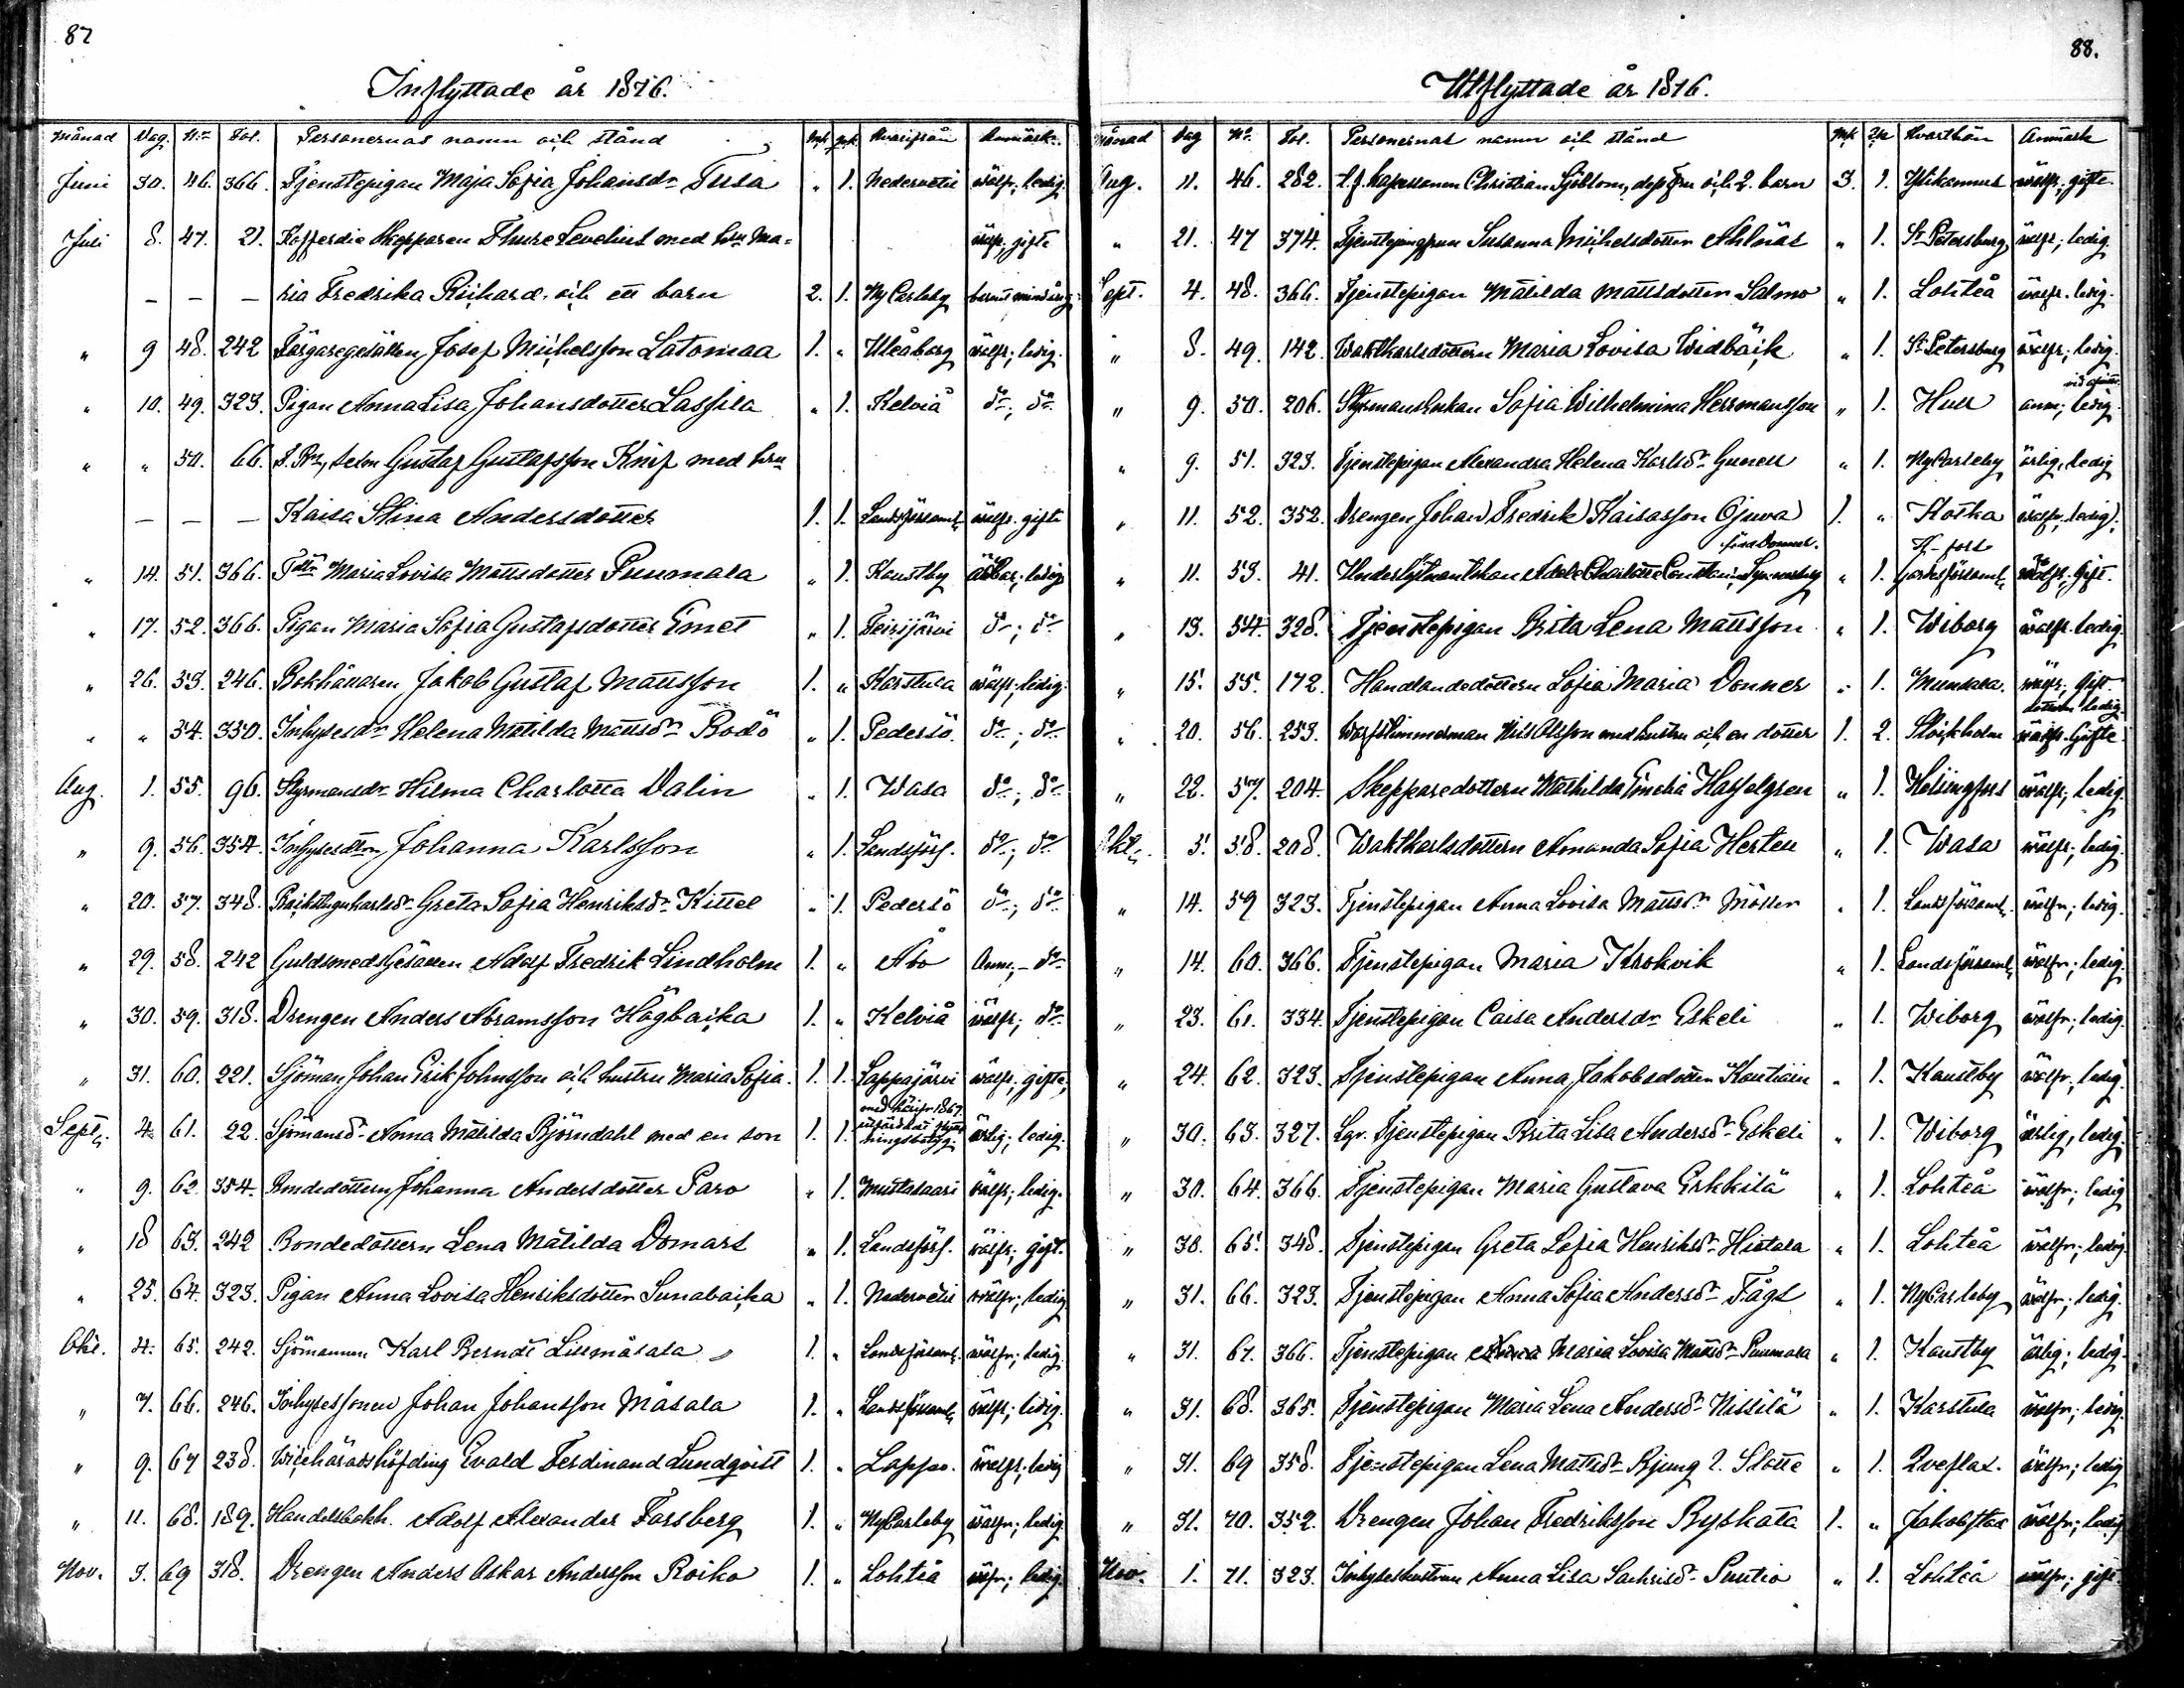 87
Inflyttade år 1876.
Månad Dag. N:o Fol. Personernas namn och stånd Mk. Qvk. Hvarifrån Anmärk.
Juni 30. 46. 366. Tjenstepigan Maja Sofia Johansdr Tusa " 1. Nedervetil wälfr; ledig.
Juli 8. 47. 21. Kofferdie Skepparen Thure Levelius med hru Ma= wälfr; gifte
— — — ria Fredrika Richard och ett barn 2. 1. NyCarleby barnet minderårig
" 9 48. 242 Färgaregesällen Josef Michelsson Latomaa 1. " Uleåborg wälfr; ledig.
" 10. 49. 323. Pigan Anna Lisa Johansdotter Lassila " 1. Kelviå do; do
" " 50. 66. Gustaf Gustafsson Knif med hru
— — — Kaisa Stina Andersdotter 1. 1. Landsförsaml. wälfr. gifte
" 14. 51. 366. Maria Lovisa Mattsdotter Puumala " 1. Kaustby ledig
" 17. 52. 366. Pigan Maria Sofia Gustafsdotter Emet " 1. do; do
" 26. 53. 246. Bokhållaren Jakob Gustaf Mattsson 1. " Karstula wälfr; ledig.
" " 54. 350. Inhysesdr Helena Matilda Mattsdr Bodö " 1. Pedersö. do; do
Aug. 1. 55. 96. Styrmansdr Hilma Charlotta Dalin " 1. Wasa do; do
" 9. 56. 354. Johanna Karlsson " 1. Landsförs. do; do
" 20. 57. 348. Greta Sofia Henriksdr Kittel " 1. Pedersö do; do
" 29. 58. 242 GuldsmedsGesällen Adolf Fredrik Lindholm 1. " Åbo Anm; do
" 30. 59. 318. Drengen Anders Abramsson Högbacka 1. " Kelviå wälfr; do
" 31. 60. 221. Sjöman Johan Erik Johnsson och hustru Maria Sofia. 1. 1. Lappajärvi wälfr; gifte,
Sept. 4. 61. 22. Sjömansdr Anna Matilda Björndahl med en son 1. 1. ärlig; ledig.
" 9. 62. 354. Bondedottern Johanna Andersdotter Paro " 1. Mustasaari wälfr; ledig.
" 18 63. 242 Bondedottern Lena Matilda Domars " 1. Landsförs. wälfr; gift.
" 25. 64. 323. Pigan Anna Lovisa Henriksdotter Sunabacka " 1. Nedervetil wälfr; ledig
Okt. 4. 65. 242. Sjömannen Karl Berndt Lillmåsala 1. " Landsförsaml. wälfr; ledig.
" 7. 66. 246. Inhysessonen Johan Johansson Måsala 1. " Landsförsaml. wälfr; ledig.
" 9. 67 238. Wicehäradshöfding Evald Ferdinand Lundqvist 1. " Lappo. wälfr; ledig
" 11. 68. 189. Handelsbokh. Adolf Alexander Forsberg 1. " NyCarleby wälfr; ledig.
Nov. 3. 69 318. Drengen Anders Oskar Andersson Roiko 1. " Lohteå wälfr; ledig.
88.
Utflyttade år 1876.
Månad Dag No Fol. Personernas namn och stånd Mk Qk Hvarthän Anmärk
Aug. 11. 46. 282. Christian Sjöblom, dess fru och 2. barn 3. 1. Ylikannus wälfr; gifte
" 21. 47 374. Susanna Michelsdotter Ahlnäs " 1. St Petersburg wälfr; ledig.
Sept. 4. 48. 366. Tjenstepigan Matilda Mattsdotter Salmo " 1. Lohteå wälfr. ledig.
" 8. 49. 142. Waktkarlsdottern Maria Lovisa Widbäck " 1. St Petersburg wälfr; ledig.
" 9. 50. 206. Styrmansenkan Sofia Wilhelmina Herrmansson " 1. Hull anm; ledig.
" 9. 51. 323. Tjenstepigan Alexandra Helena Karlsdr Gunell " 1. NyCarleby ärlig, ledig
" 11. 52. 352. Drengen Johan Fredrik Kaisasson Ojuva 1. " Kotka wälfr, ledig.
född Donner.
" 11. 53. 41. Underlöjtnantskan Adele Charlotte " 1. wälfr; Gift.
" 13. 54. 328. Tjenstepigan Brita Lena Mattsson " 1. Wiborg wälfr. ledig.
" 15. 55. 172. Handlandedottern Sofia Maria Donner " 1. Munsala. wälfr; Gift.
dottern ledig
" 20. 56. 253. Warfstimmerman Nils Olsson med hustru och en dotter 1. 2. Stockholm wälfr. Gifte.
" 22. 57. 204. Skepparedottern Mathilda Emelia Hasselgren " 1. Helsingfors wälfr; ledig.
Okt. 3. 58. 208. Waktkarlsdottern Amanda Sofia Herten " 1. Wasa wälfr; ledig.
" 14. 59 323. Tjenstepigan Anna Lovisa Mattsdr Möller " 1. Landsförsaml. wälfr; ledig.
" 14. 60. 366. Tjenstepigan Maria Krokvik " 1. Landsförsaml. wälfr; ledig.
" 23. 61. 334. Tjenstepigan Caisa Andersdr Eskeli " 1. Wiborg wälfr; ledig.
" 24. 62. 323. Tjenstepigan Anna Jakobsdotter " 1. Kaustby wälfr, ledig.
" 30. 63. 327. Tjenstepigan Brita Lisa Andersdr Eskeli " 1. Wiborg ärlig, ledig.
" 30. 64. 366. Tjenstepigan Maria Gustava Erkkilä " 1. Lohteå wälfr; ledig
" 30. 65. 348. Tjenstepigan Greta Sofia Henriksdr Hietala " 1. Lohteå wälfr; ledig
" 31. 66. 323. Tjenstepigan Anna Sofia Andersdr Fågs " 1. NyCarleby wälfr; ledig.
" 31. 67. 366. Tjenstepigan Maria Lovisa Mattsdr Puumala " 1. Kaustby ärlig; ledig.
" 31. 68. 365. Tjenstepigan Maria Lena Andersdr Nissilä " 1. Karstula wälfr; ledig.
" 31. 69 358. Tjenstepigan Lena Mattsdr Bjung l. Slotte " 1. Qveflax. wälfr; ledig
" 31. 70. 352. Drengen Johan Fredriksson Ryskata 1. " Jakobstad wälfr; ledig
Nov. 1. 71. 323. Inhyseshustrun Anna Lisa Sachrisdr Puutio " 1. Lohteå wälfr; gift.